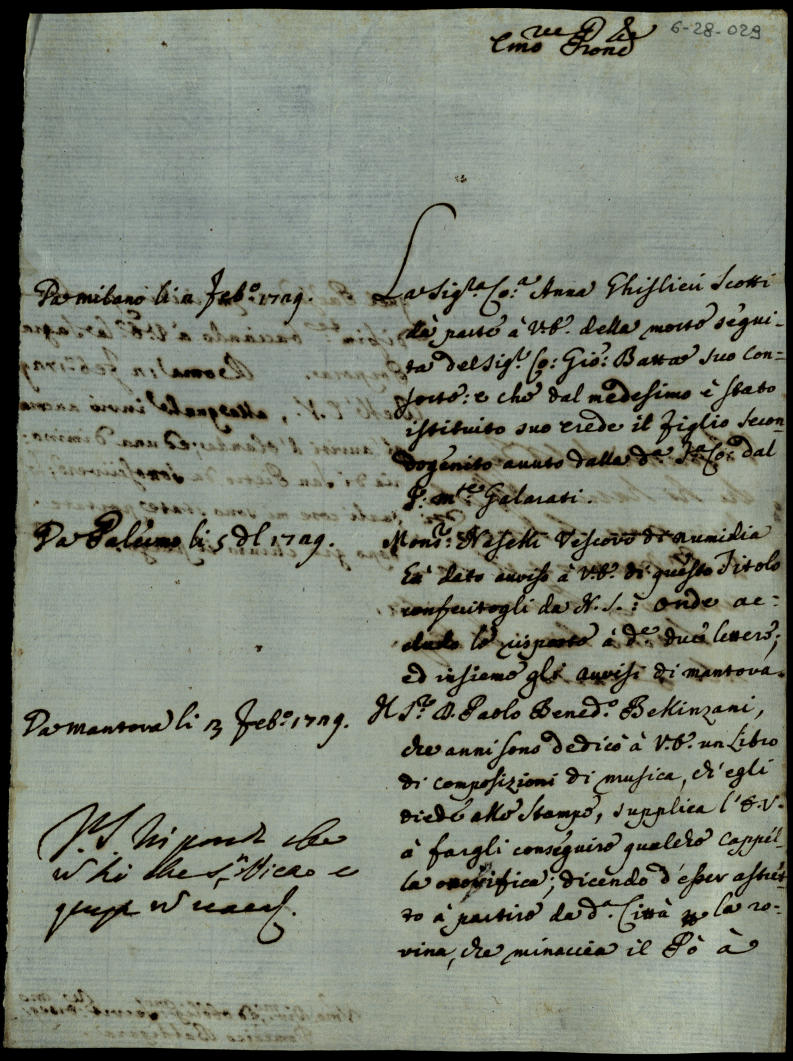 6-28-029
Emo e Rmo Prone
Da Milano li 2 Feb.o 1729.
La Sig.ra Co.a Anna Ghislieri Scotti
dà parte à V.E. della morte segui-
ta del Sig.r Co: Gio: Batta suo con-
sorte: e che dal medesimo è stato
istituito suo erede il figlio secon-
dogenito avuto dalla d.a Co: dal
P: m.to Galarati.
Da Palermo li 5 d.o 1729.
Mons.r Naselli Vescovo di Numidia
hà dato avviso à V.E. di questo Titolo
conferitogli da N.S.: onde ac-
cludo le risposte à d.e due lettere;
ed insieme gli avvisi di Mantova.
Da Mantova li 13 Feb.o 1729.
Il S.r D. Paolo Bened.o Bellinzani,
che anni sono dedicò à V.E. un Libro
di composizioni di musica, ch'egli
diede alle stampe, supplica l'E.V.
à fargli conseguire qualche cappel-
la onorifica; dicendo d'esser astret-
to à partire da d.a Città p la ro-
vina, che minaccia il Pò à